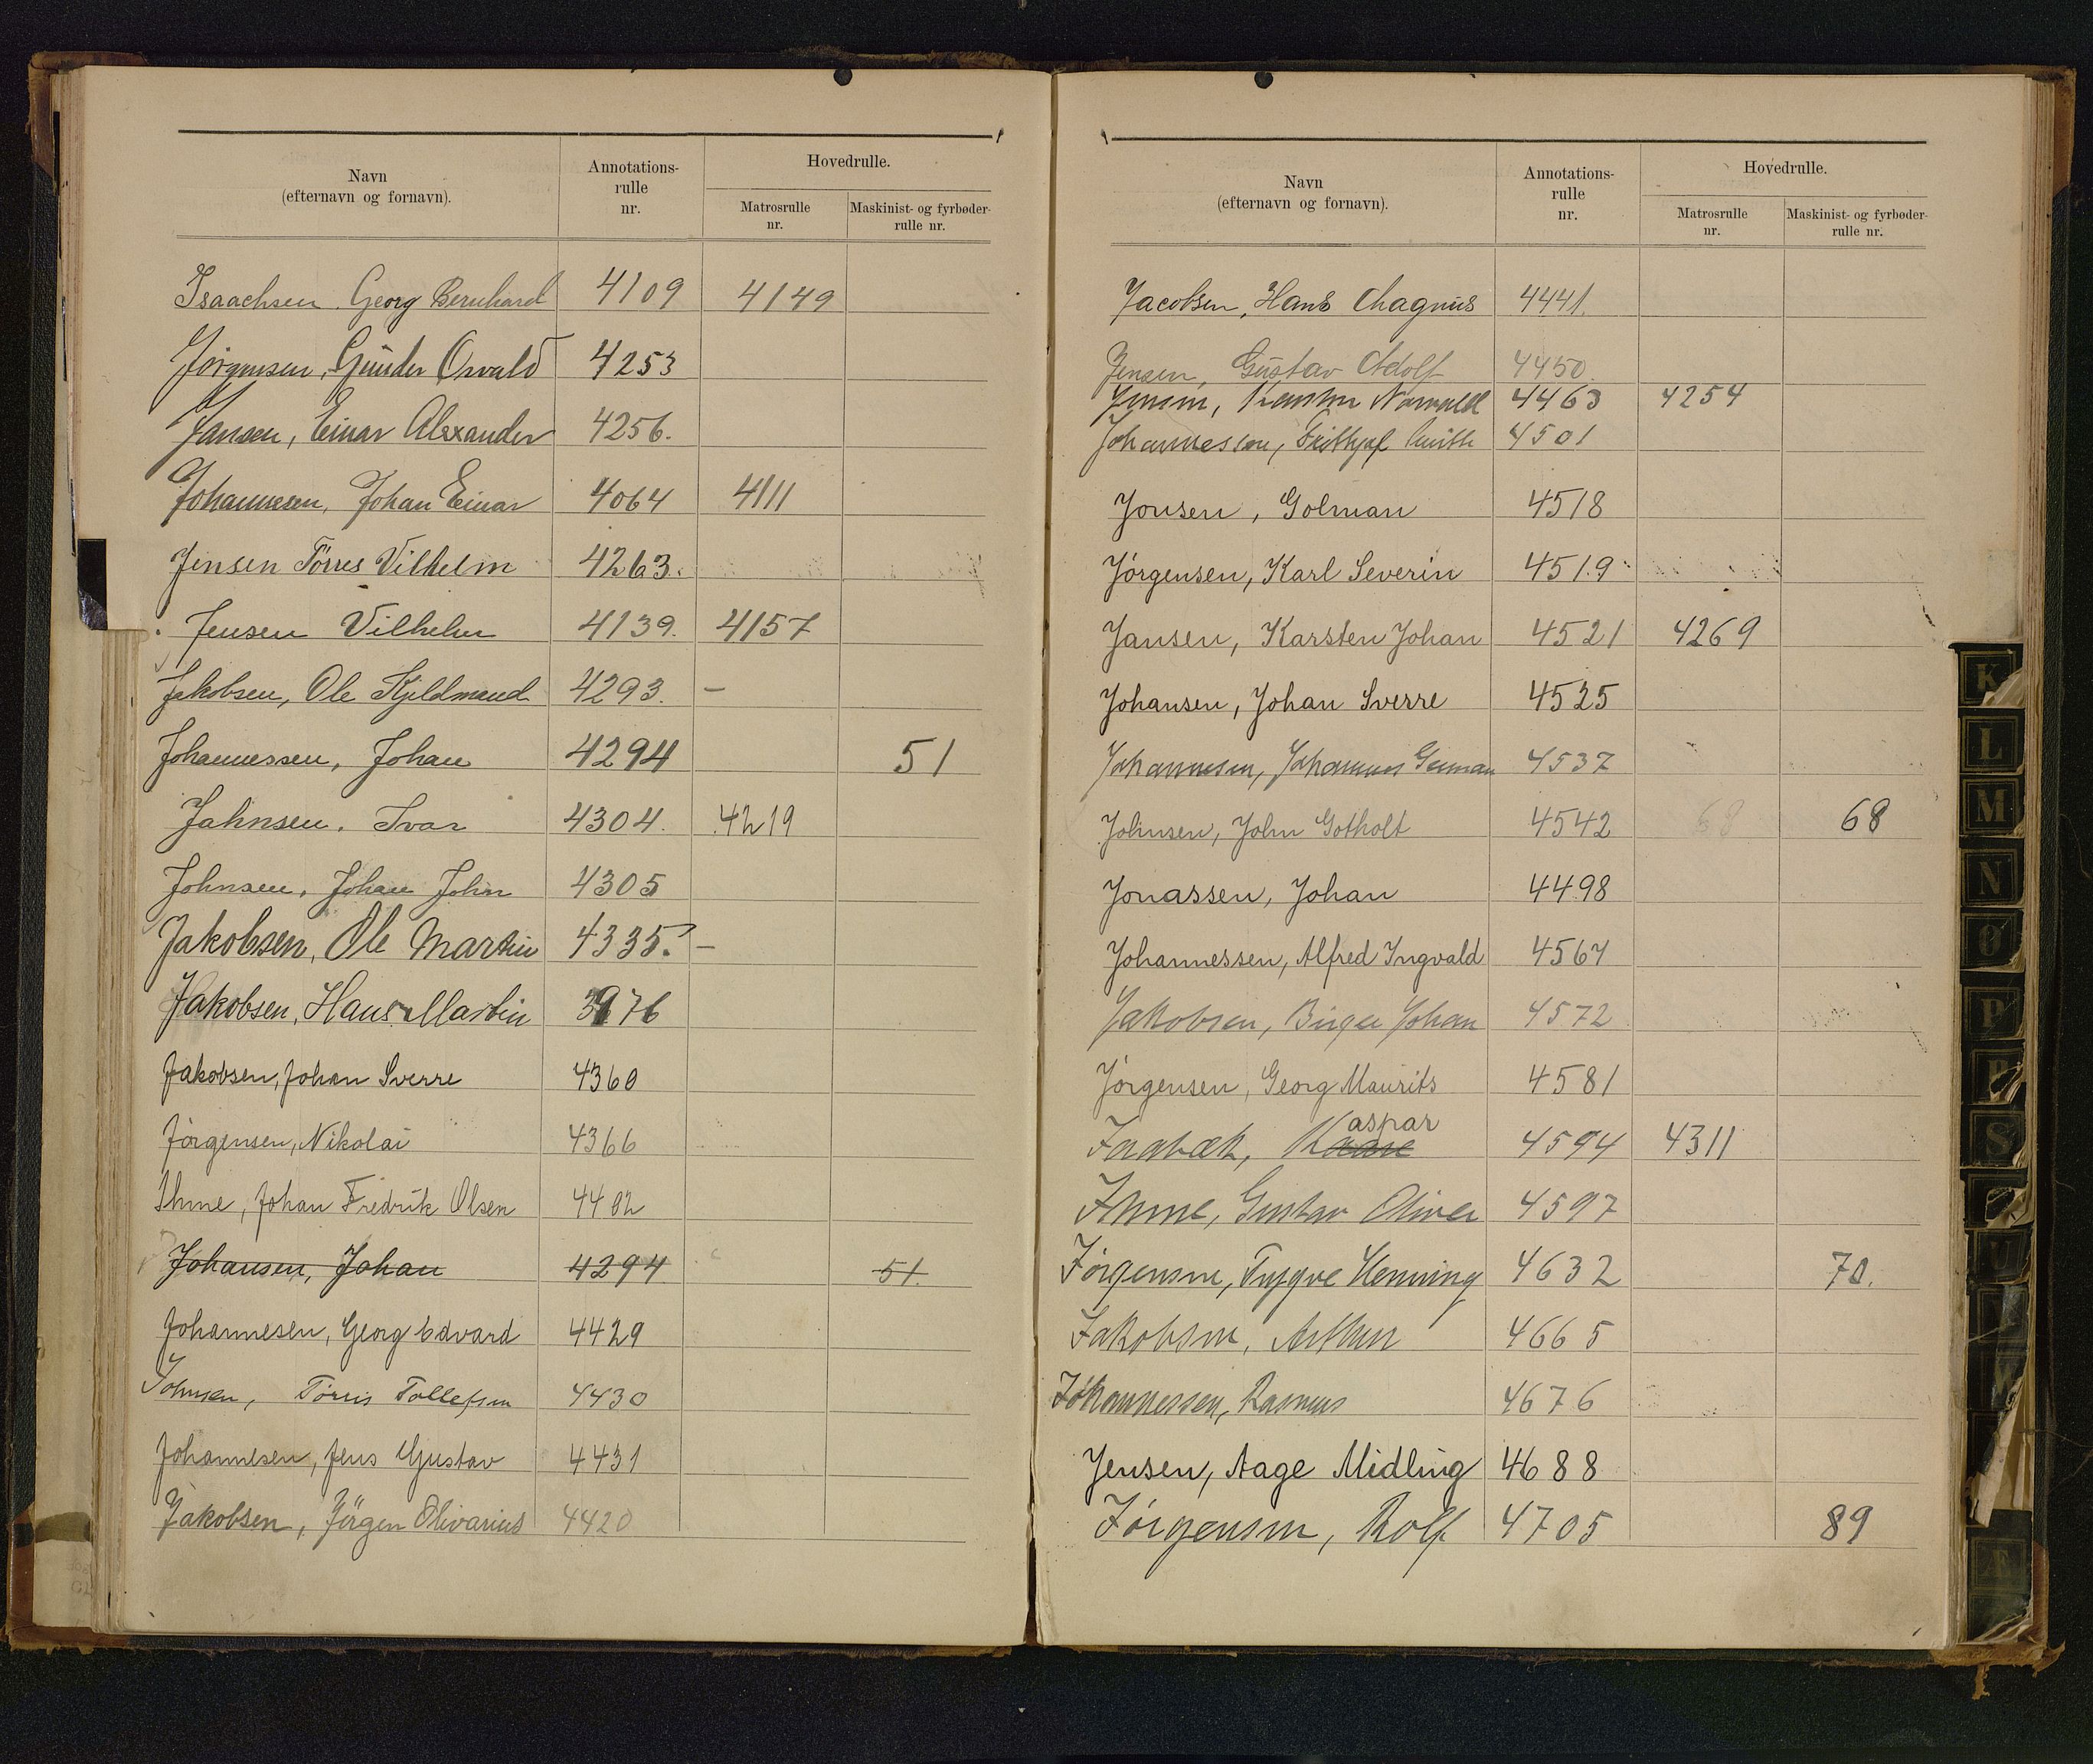 Navn
(efternavn og fornavn).
Annotations-
rulle
nr.
Hovedrulle.
Matrosrulle
nr.
Maskinist- og fyrbøder-
rulle nr.
Isaachsen. Georg Bernhard 4109 4149
Jörgensen, Gunder Osvald 4253
Jansen, Einar Alexander 4256.
Johannesen, Johan Einar 4064 4111
Jensen Törres Vilhelm 4263.
Jensen Vilhelm 4139. 4157
Jakobsen, Ole Kjeldmand 4293. –
Johannessen, Johan 4294 51
Jahnsen. Ivar 4304. 4219
Johnsen, Johan John 4305
Jakobsen, Ole Martin 4335. –
Jakobsen, Hans Martin 3976
Jakobsen, Johan Sverre 4360
Jörgensen, Nikolai 4366
Ihme, Johan Fredrik Olsen 4402
Johansen, Johan 4294 51.
Johannesen, Georg Edvard 4429
Johnsen, Törris Tollefsen 4430
Johannesen, Jens Gustav 4431
Jakobsen, Jörgen Olivarius 4420
Navn
(efternavn og fornavn).
Annotations-
rulle
nr.
Hovedrulle.
Matrosrulle
nr.
Maskinist- og fyrbøder-
rulle nr.
Jacobsen, Hans Magnus 4441.
Jensen, Gustav Adolf 4450.
Jensen, Karsten Norvald 4463 4254
Johannessen, Frithjof 4501
Jonsen, Golman 4518
Jörgensen, Karl Severin 4519
Jansen, Karsten Johan 4521 4269
Johansen, Johan Sverre 4525
Johannesen, Johannes German 4537
Johnsen, John Gotholt 4542 68 68
Jonassen, Johan 4498
Johannessen, Alfred Ingvald 4567
Jakobsen, Birger Johan 4572
Jörgensen, Georg Maurits 4581
aspar
K 4594 4311
Ihme, Gustav Oliver 4597
Jörgensen, Trygve Henning 4632 70.
Jakobsen, Arthur 4665
Johannessen, Rasmus 4676
Jensen, Aage Midling 4688
Jörgensen, Rolf 4705 89
K
L
M
N
O
P
R
S